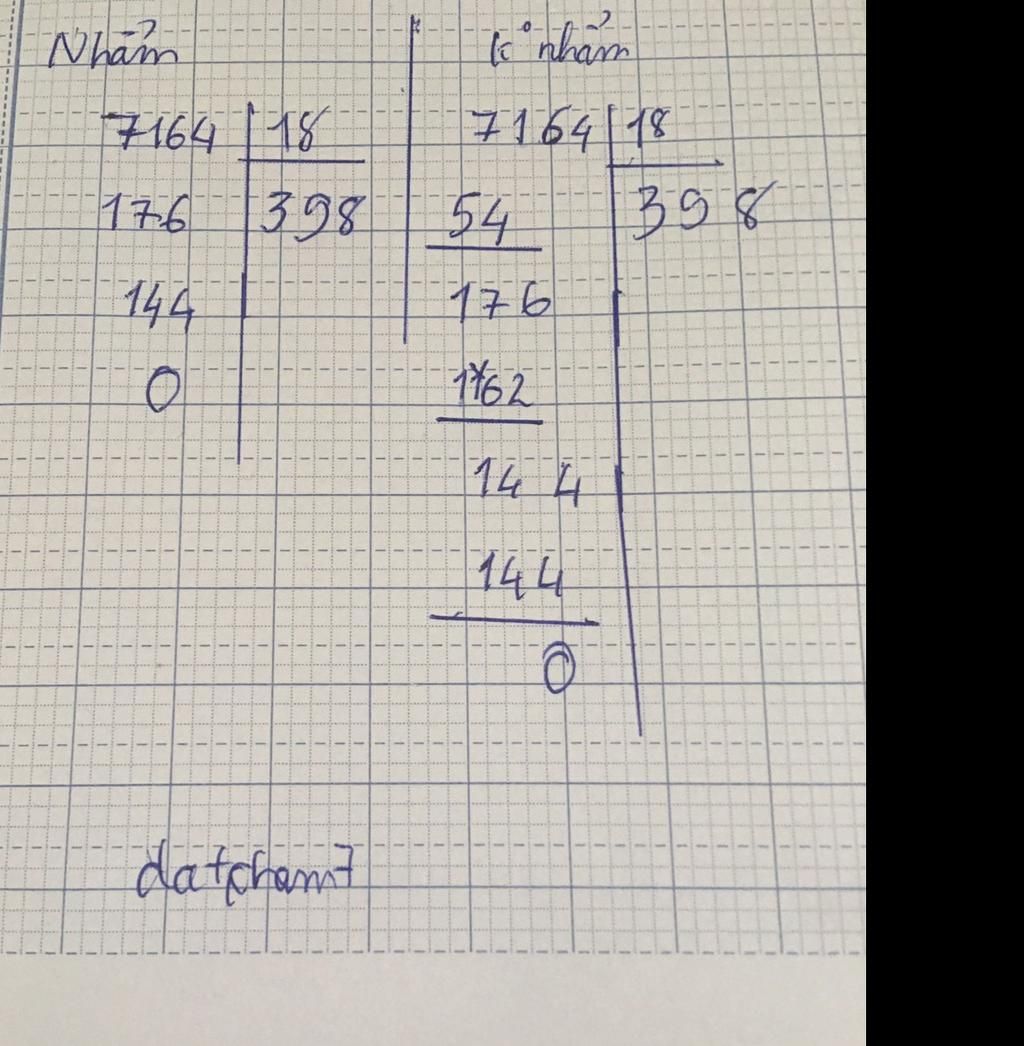 Nhẩm
7164 18
176 398
144
0
k° nhẩm
7164 18
54 398
176
162
144
144
0
datcham7